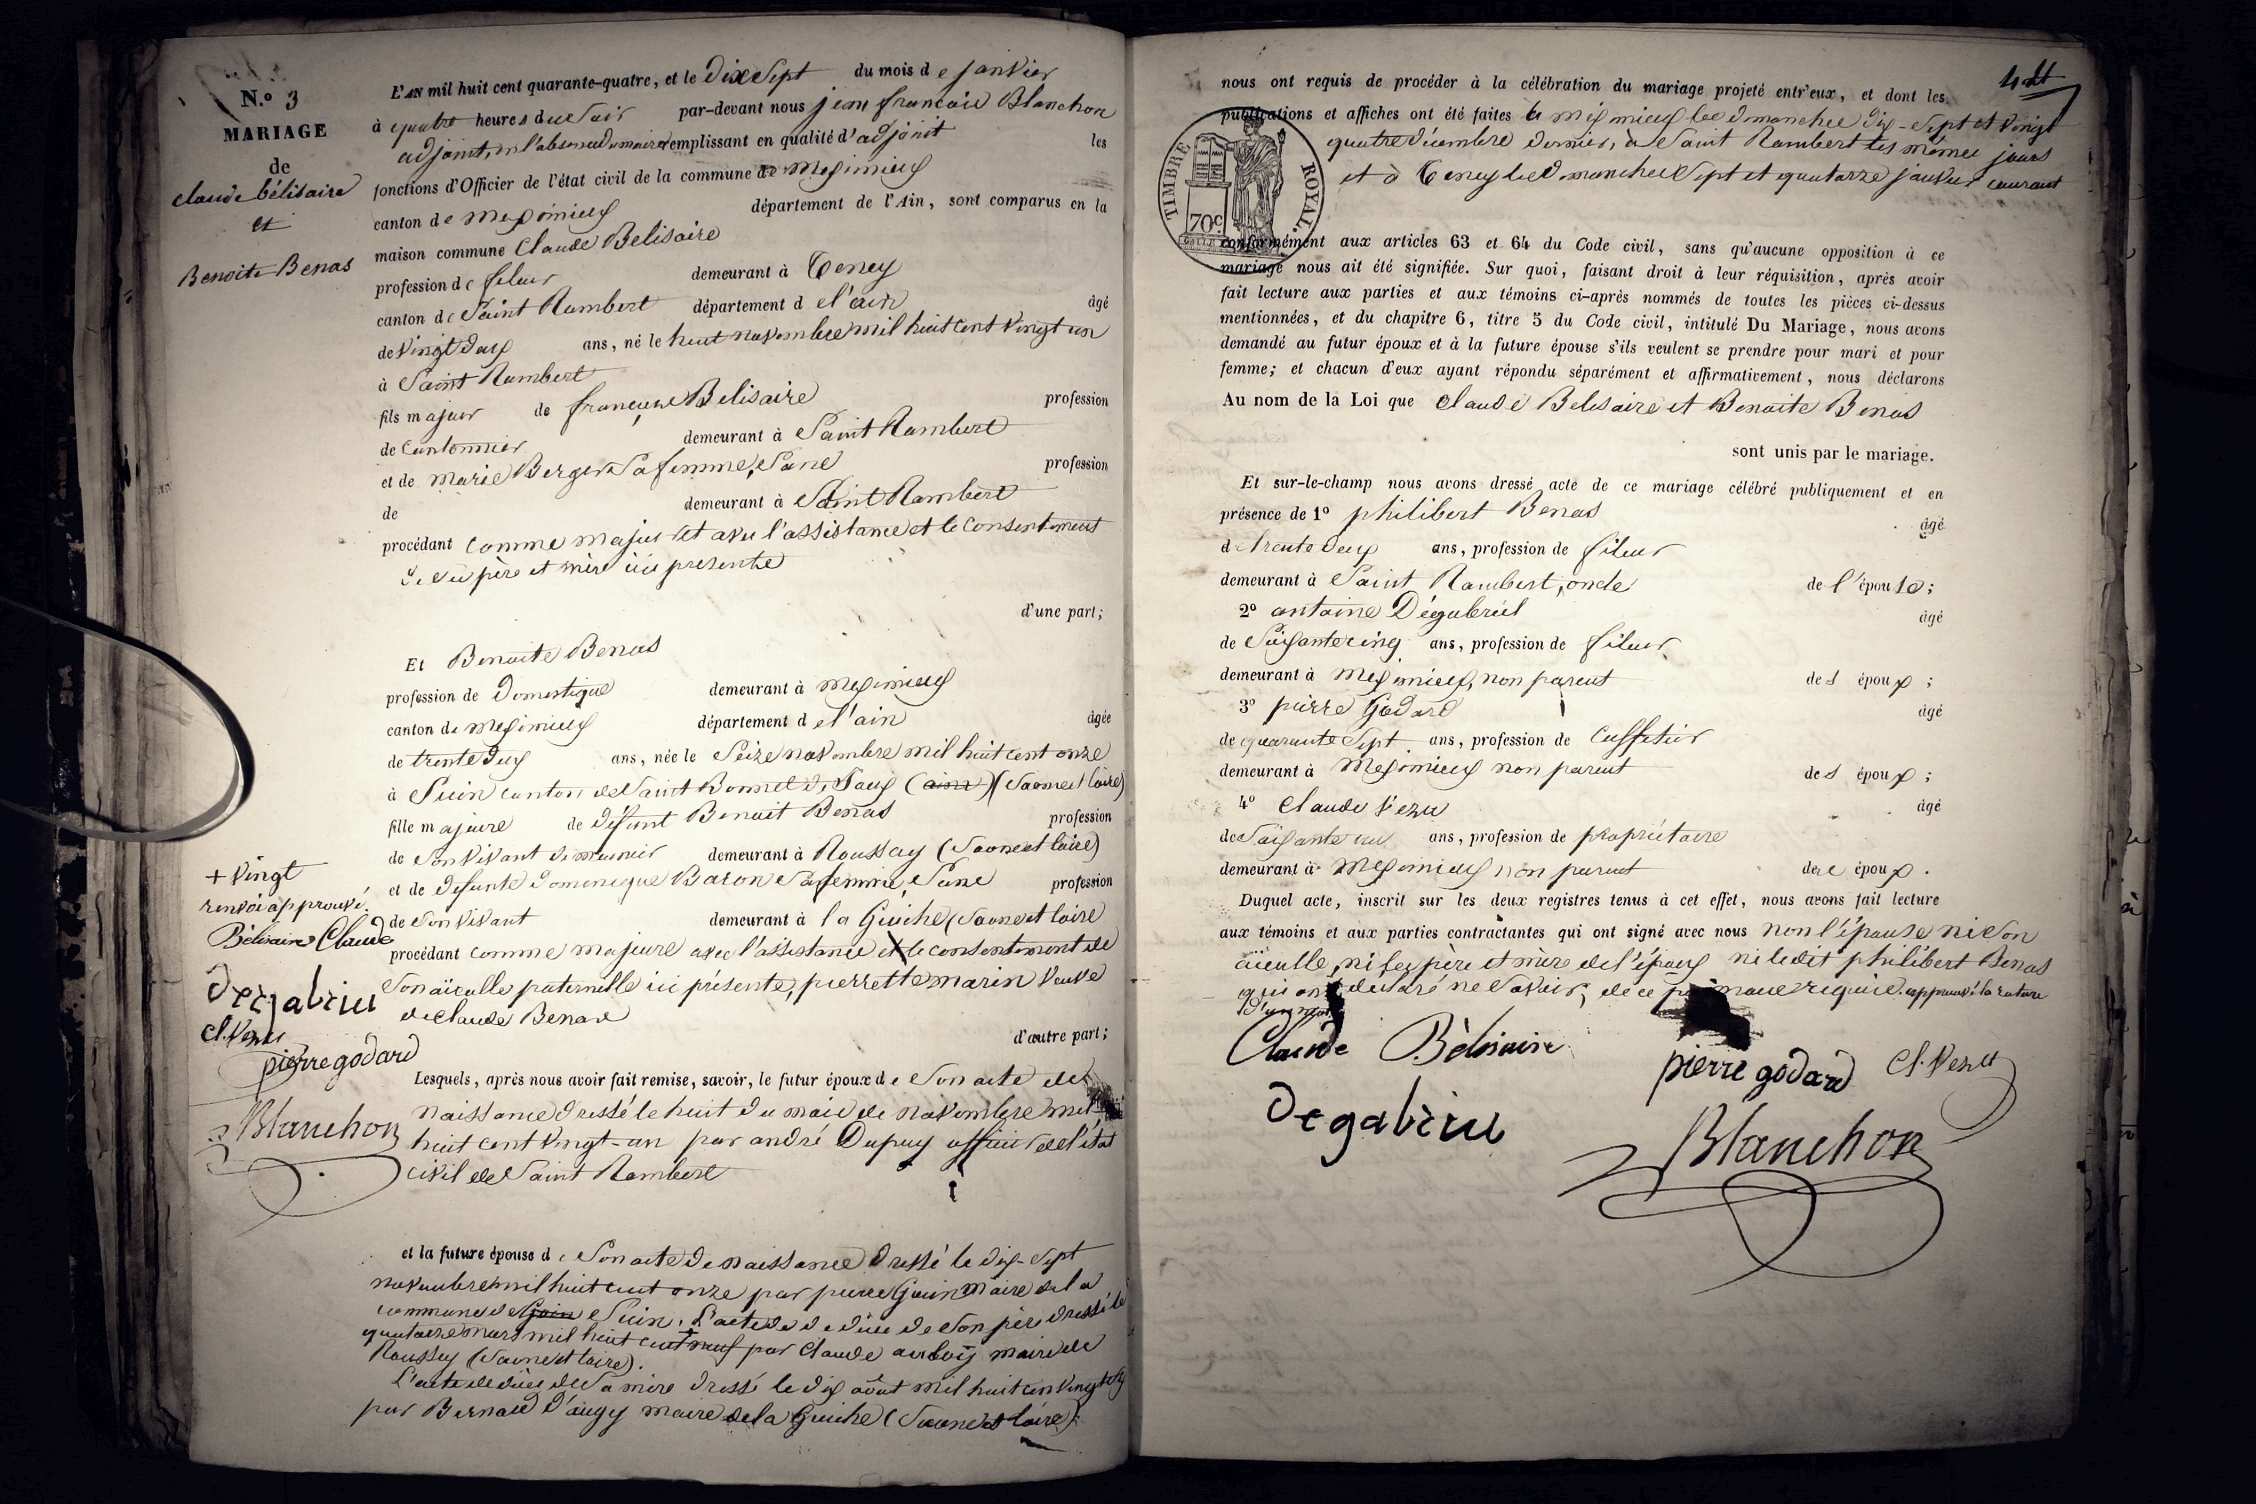 N.º 3
MARIAGE
de
claude bélisaire
et
Benoite Benas
L'AN mil huit cent quarante-quatre, et le Dix Sept du mois de janvier
à quatre heures du Soir par-devant nous jean francois Blanchon
adjoint, en l'absence du maire remplissant en qualité d'adjoint les
fonctions d'Officier de l'état civil de la commune de Meximieux
canton de Meximieux département de l'Ain, sont comparus en la
maison commune Claude Belisaire
profession de fileur demeurant à Teney
canton de Saint Rambert département de l'ain âgé
de vingt deux ans, né le huit novembre mil huit cent vingt un
à Saint Rambert
fils majeur de françois Belisaire profession
de Cantonnier demeurant à Saint Rambert
et de Marie Berger Sa femme, Sans profession
de demeurant à Saint Rambert
procédant comme majeur et avec l'assistance et le consentement
de ses père et mère ici presents
d'une part;
Et Benoite Benas
profession de Domestique demeurant à meximieux
canton de meximieux département de l'ain âgée
de trente deux ans, née le Seize novembre mil huit cent onze
à Suin canton de Saint Bonnet de Joux (ain) (Saone et loire)
fille majeure de défunt Benoit Benas profession
de Son vivant de meunier demeurant à Roussay (Saone et loire)
et de defunte Dominique Baron Sa femme, Sans profession
de Son vivant demeurant à la Guiche (Saone et loire
procédant comme majeure avec l'assistance et le consentement de
Son aïeulle paternelle ici présente, pierrette marin veuve
de Claude Benas
d'autre part;
+ vingt
renvoi approuvé.
Bélisaire Claude
Degabriel
Cl. Vezu
pierre godard
Blanchon
Lesquels, après nous avoir fait remise, savoir, le futur époux de Son acte de
naissance dressé le huit du mois de novembre mil
huit cent vingt-un par andré Dupuy officier de l'état
civil de Saint Rambert
et la future épouse de Son acte de naissance dressé le dix-Sept
novembre mil huit cent onze par pierre Guin Maire de la
commune de Suin. L'acte de décès de Son père dressé le
quatorze mars mil huit cent + neuf par Claude maire de
Roussay (Saone et loire).
L'acte de décès de Sa mère dressé le dix août mil huit cent vingt
par Bernard D'augy maire de la Guiche (Saone et loire).
nous ont requis de procéder à la célébration du mariage projeté entr'eux, et dont les
publications et affiches ont été faites à Meximieux les dimanches dix-sept et vingt
quatre décembre dernier, à Saint Rambert les mêmes jours
et à Teney les dimanches Sept et quatorze janvier courant
TIMBRE ROYAL.
70c
conformément aux articles 63 et 64 du Code civil, sans qu'aucune opposition à ce
mariage nous ait été signifiée. Sur quoi, faisant droit à leur réquisition, après avoir
fait lecture aux parties et aux témoins ci-après nommés de toutes les pièces ci-dessus
mentionnées, et du chapitre 6, titre 5 du Code civil, intitulé Du Mariage, nous avons
demandé au futur époux et à la future épouse s'ils veulent se prendre pour mari et pour
femme; et chacun d'eux ayant répondu séparément et affirmativement, nous déclarons
Au nom de la Loi que Claude Belisaire et Benoite Benas
sont unis par le mariage.
Et sur-le-champ nous avons dressé acte de ce mariage célébré publiquement et en
présence de 1º philibert Benas âgé
de trente deux ans, profession de fileur
demeurant à Saint Rambert, oncle de l'épouse;
2º antoine Dégabriel âgé
de Soixante cinq ans, profession de fileur
demeurant à Meximieux, non parent des époux;
3º pierre Godard âgé
de quarante Sept ans, profession de Caffetier
demeurant à Meximieux non parent des époux;
4º Claude Vezu âgé
de Soixante un ans, profession de propriétaire
demeurant à Meximieux non parent des époux.
Duquel acte, inscrit sur les deux registres tenus à cet effet, nous avons fait lecture
aux témoins et aux parties contractantes qui ont signé avec nous non l'épouse ni Son
aïeulle, ni les père et mère de l'époux ni ledit philibert Benas
qui ont declaré ne Savoir, de ce requis. approuvé la rature
D'un mot
Claude Bélisaire
pierre godard Cl. Vezu
Degabriel
Blanchon